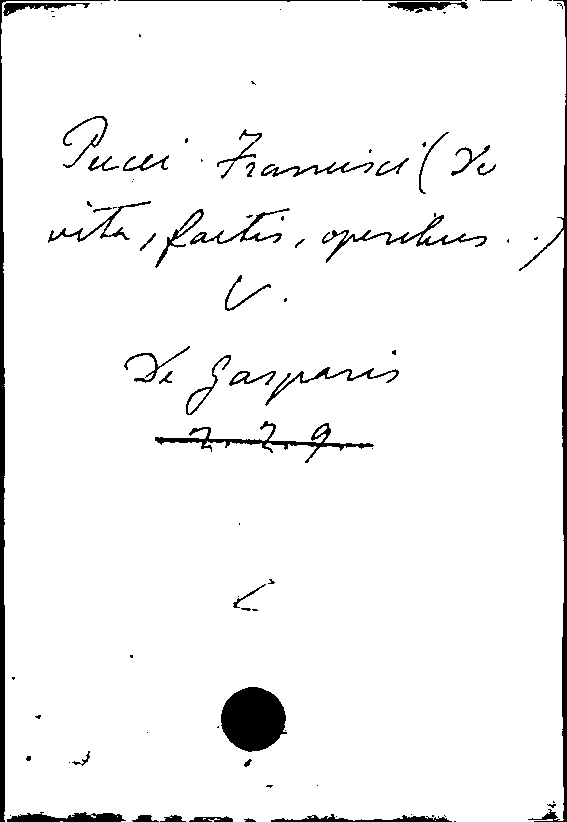 Pucci Francisci (De
vita, factis, operibus..)
V.
De Gasparis
7. 7. 9.